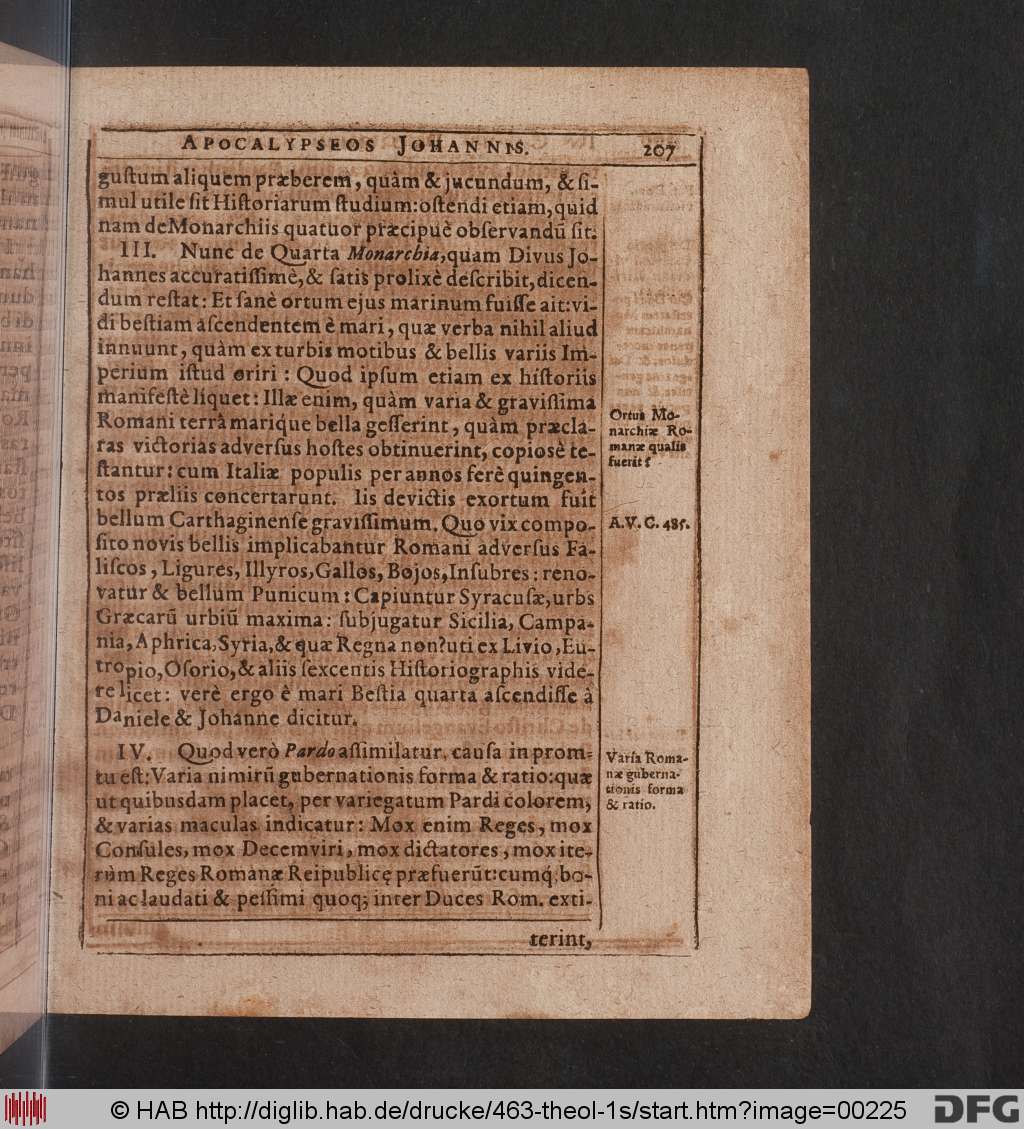 APOCALYPSEOS JOHANNIS. 207
guſtum aliquem præberem, quàm & jucundum, & ſi-
mul utile ſit Hiſtoriarum ſtudium: oſtendi etiam, quid
nam de Monarchiis quatuor præcipuè obſervandū ſit.
III. Nunc de Quarta Monarchia, quam Divus Jo-
hannes accuratiſſimè, & ſatis prolixè deſcribit, dicen-
dum reſtat: Et ſanè ortum ejus marinum fuiſſe ait: vi-
di beſtiam aſcendentem è mari, quæ verba nihil aliud
innuunt, quàm ex turbis motibus & bellis variis Im-
perium iſtud oriri: Quod ipſum etiam ex hiſtoriis
manifeſtè liquet: Illæ enim, quàm varia & graviſſima
Romani terrà marique bella geſſerint, quàm præcla-
ras victorias adverſus hoſtes obtinuerint, copiosè te-
ſtantur: cum Italiæ populis per annos ferè quingen-
tos præliis concertarunt. Iis devictis exortum fuit
bellum Carthaginenſe graviſſimum. Quo vix compo-
ſito novis bellis implicabantur Romani adverſus Fa-
liſcos, Ligures, Illyros, Gallos, Bojos, Inſubres: reno-
vatur & bellum Punicum: Capiuntur Syracuſæ, urbs
Græcarū urbiū maxima: ſubjugatur Sicilia, Campa-
nia, Aphrica, Syria, & quæ Regna non? uti ex Livio, Eu-
tropio, Oſorio, & aliis ſexcentis Hiſtoriographis vide-
re licet: verè ergo è mari Beſtia quarta aſcendiſſe à
Daniele & Johanne dicitur.
IV. Quod verò Pardo aſſimilatur, cauſa in prom-
tu eſt: Varia nimirū gubernationis forma & ratio: quæ
ut quibusdam placet, per variegatum Pardi colorem,
& varias maculas indicatur: Mox enim Reges, mox
Conſules, mox Decemviri, mox dictatores, mox ite-
rùm Reges Romanæ Reipublicę præfuerūt: cumq́; bo-
ni ac laudati & peſſimi quoq; inter Duces Rom. exti-
terint,
Ortus Mo-
narchiæ Ro-
manæ qualis
fuerit?
A.V.C. 485.
Varia Roma-
næ guberna-
tionis forma
& ratio.
© HAB http://diglib.hab.de/drucke/463-theol-1s/start.htm?image=00225
DFG